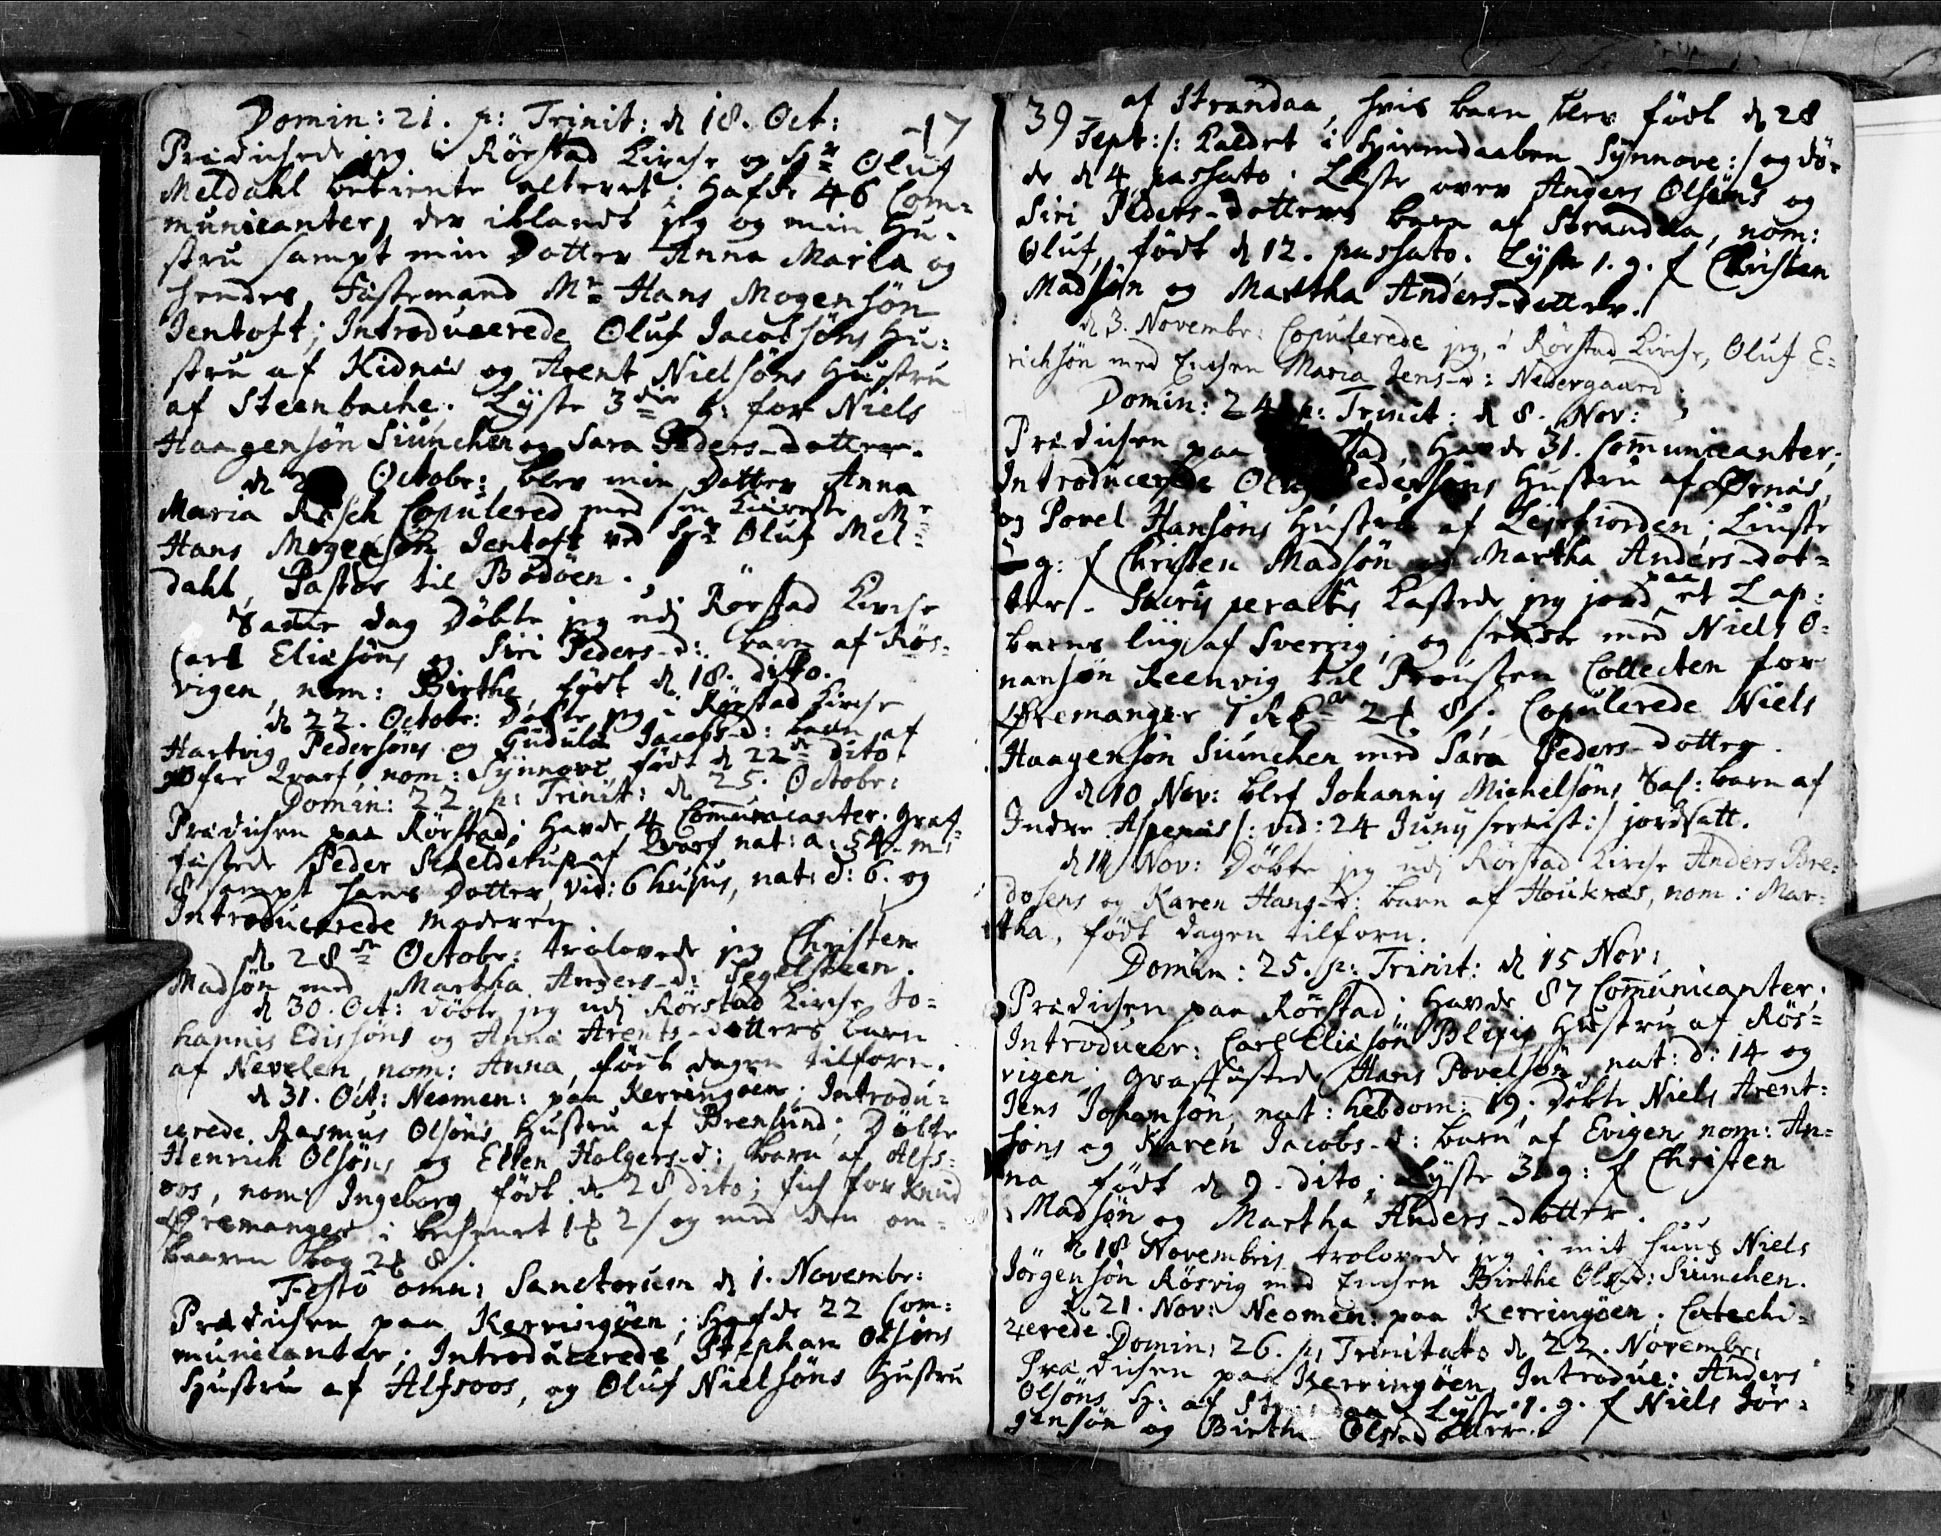 Domin: 21. p: Trinit: d 18. Oct:
-17
Prædichede jeg i Rörstad Kirche og Hr Oluf
Meldahl betiente alteret; Hafde 46 Com=
municanter, der iblandt jeg og min Hu=
stru sampt min Dotter Anna Maria og
hendes Fæstemand Mr Hans Mogensön
Jentoft; Introducerede Oluf Jacobsöns Hu=
stru af Kidnæs og Arent Nielsöns Hustru
af Steenbache. Lyste 3die g: for Niels
Haagensön Siunchen og Sara Peders-dotter.
d 2 Octobr: blev min Dotter Anna
Maria Rasch Copulered med sin Kiereste Mr
Hans Mogensön Jentoft ved Hr Oluf Mel=
dahl, Pastor til Bodöen.
Samme dag Döbte jeg udj Rörstad Kirche
Carl Eliesöns og Siri Peders-d: barn af Rös=
vigen, nom: Birthe, födt d 18. dito.
d 22. Octobr: Döbte jeg i Rörstad Kirche
Hartvig Pedersöns og Gudula Jacobs-d: barn af
Qvarf, nom: Synnove, födt d 22de dito
Domin: 22. p: Trinit: d 25. Octobr:
Prædichen paa Rörstad; Havde 4 Communicanter. Graf=
fæstede Peder Scheldetup af Qvarf nat: a: 54. m:
8 sampt hans Dotter, vid: 6 hujus, nat: d: 6. og
Introducerede Moderen
d 28de Octobr: trolovede jeg Christen
Madsön med Martha Anders-d: Segelsteen.
d 30. Oct: döbte jeg udj Rörstad Kirche Jo=
hannis Edissöns og Anna Arents-dotters barn
af Nevelen, nom: Anna, födt dagen tilforn.
d 31. Oct: Neomen: paa Kerringöen; Introdu=
cerede Rasmus Olsöns Hustru af Brensund; Döbte
Henrich Olsöns og Ellen Holgers-d: barn af Alfs=
oos, nom: Ingeborg födt d 28 dito; fich for Knud
Öremanger i bechenet 1 2 / og med den om=
baaren bog 2 8
Festo omn: Sanctorum d 1. Novembr:
Prædichen paa Kerringöen; Hafde 22 Com=
municanter; Introducerede Stephan Olsöns
Hustru af Alfsoos, og Oluf Nielsöns Hustru
39
af Strandaa, hvis barn blev födt d 28
Sept: /: Kaldet i Hiemdaaben Synnove :/ og dö=
de d 4 passato. Læste over Anders Olsöns og
Siri Peders-dotters barn af Strandaa, nom:
Oluf, födt d 12. passato. Lyste 1. g. f Christen
Madsön og Martha Anders-dotter.
d 3. Novembr: Copulerede jeg, i Rörstad Kirche, Oluf E=
richsön med Enchen Maria Jens-d: Nedergaard
Domin: 24 p: Trinit: d 8. Nov:
Prædichen paa stad, Havde 31. Communicanter;
Introducerede Oluf Pedersöns Hustru af Örnæs,
og Povel Hansöns Hustru af Leerfiorden; Liuste
g: f Christen Madsön og Martha Anders-dot=
ter. Sacris peractis kastede jeg jord paa et Lap:
barns liig af Sverrig; og sendte med Niels O=
nansön Reenvig til Prousten Collecten for
Öremanger 1 Rdr 2 8 /. Copulerede Niels
Haagensön Siunchen med Sara Peders-dotter.
d 10 Nov: blef Johannis Michelsöns Sal: barn af
Indre Aspenæs /: vid: 24 Junij sepult :/ jordsatt.
d 14 Nov: Döbte jeg udj Rörstad Kirche Anders Bre=
dosens og Karen Hans-d: barn af Houknæs, nom: Mar=
tha, födt dagen tilforn.
Domin: 25. p: Trinit: d 15 Nov:
Prædichen paa Rörstad; Havde 87 Communicanter;
Introducer: Carl Eliesön Blixis Hustru af Rös=
vigen; Graffæstede Hans Povelsön, nat: d: 14 og
Jens Johansön, nat: hebdom: 19; Döbte Niels Arent=
söns og Karen Jacobs-d: barn af Evigen, nom: An=
na födt d 9. dito; Lyste 3. g: f Christen
Madsön og Martha Anders-dotter.
d 18 Novembris trolovede jeg i mit huus Niels
Jörgensön Rösvig med Enchen Birthe Ols-d: Siunchen.
d 21. Nov: Neomen: paa Kerringöen; Catechi=
zerede
Domin: 26. p: Trinitat: d 22. Novembr:
Prædichen paa Kerringöen, Introduc: Anders
Olsöns H: af Lyste 1. g. f Niels Jör=
gensön og Birthe Olsdotter.